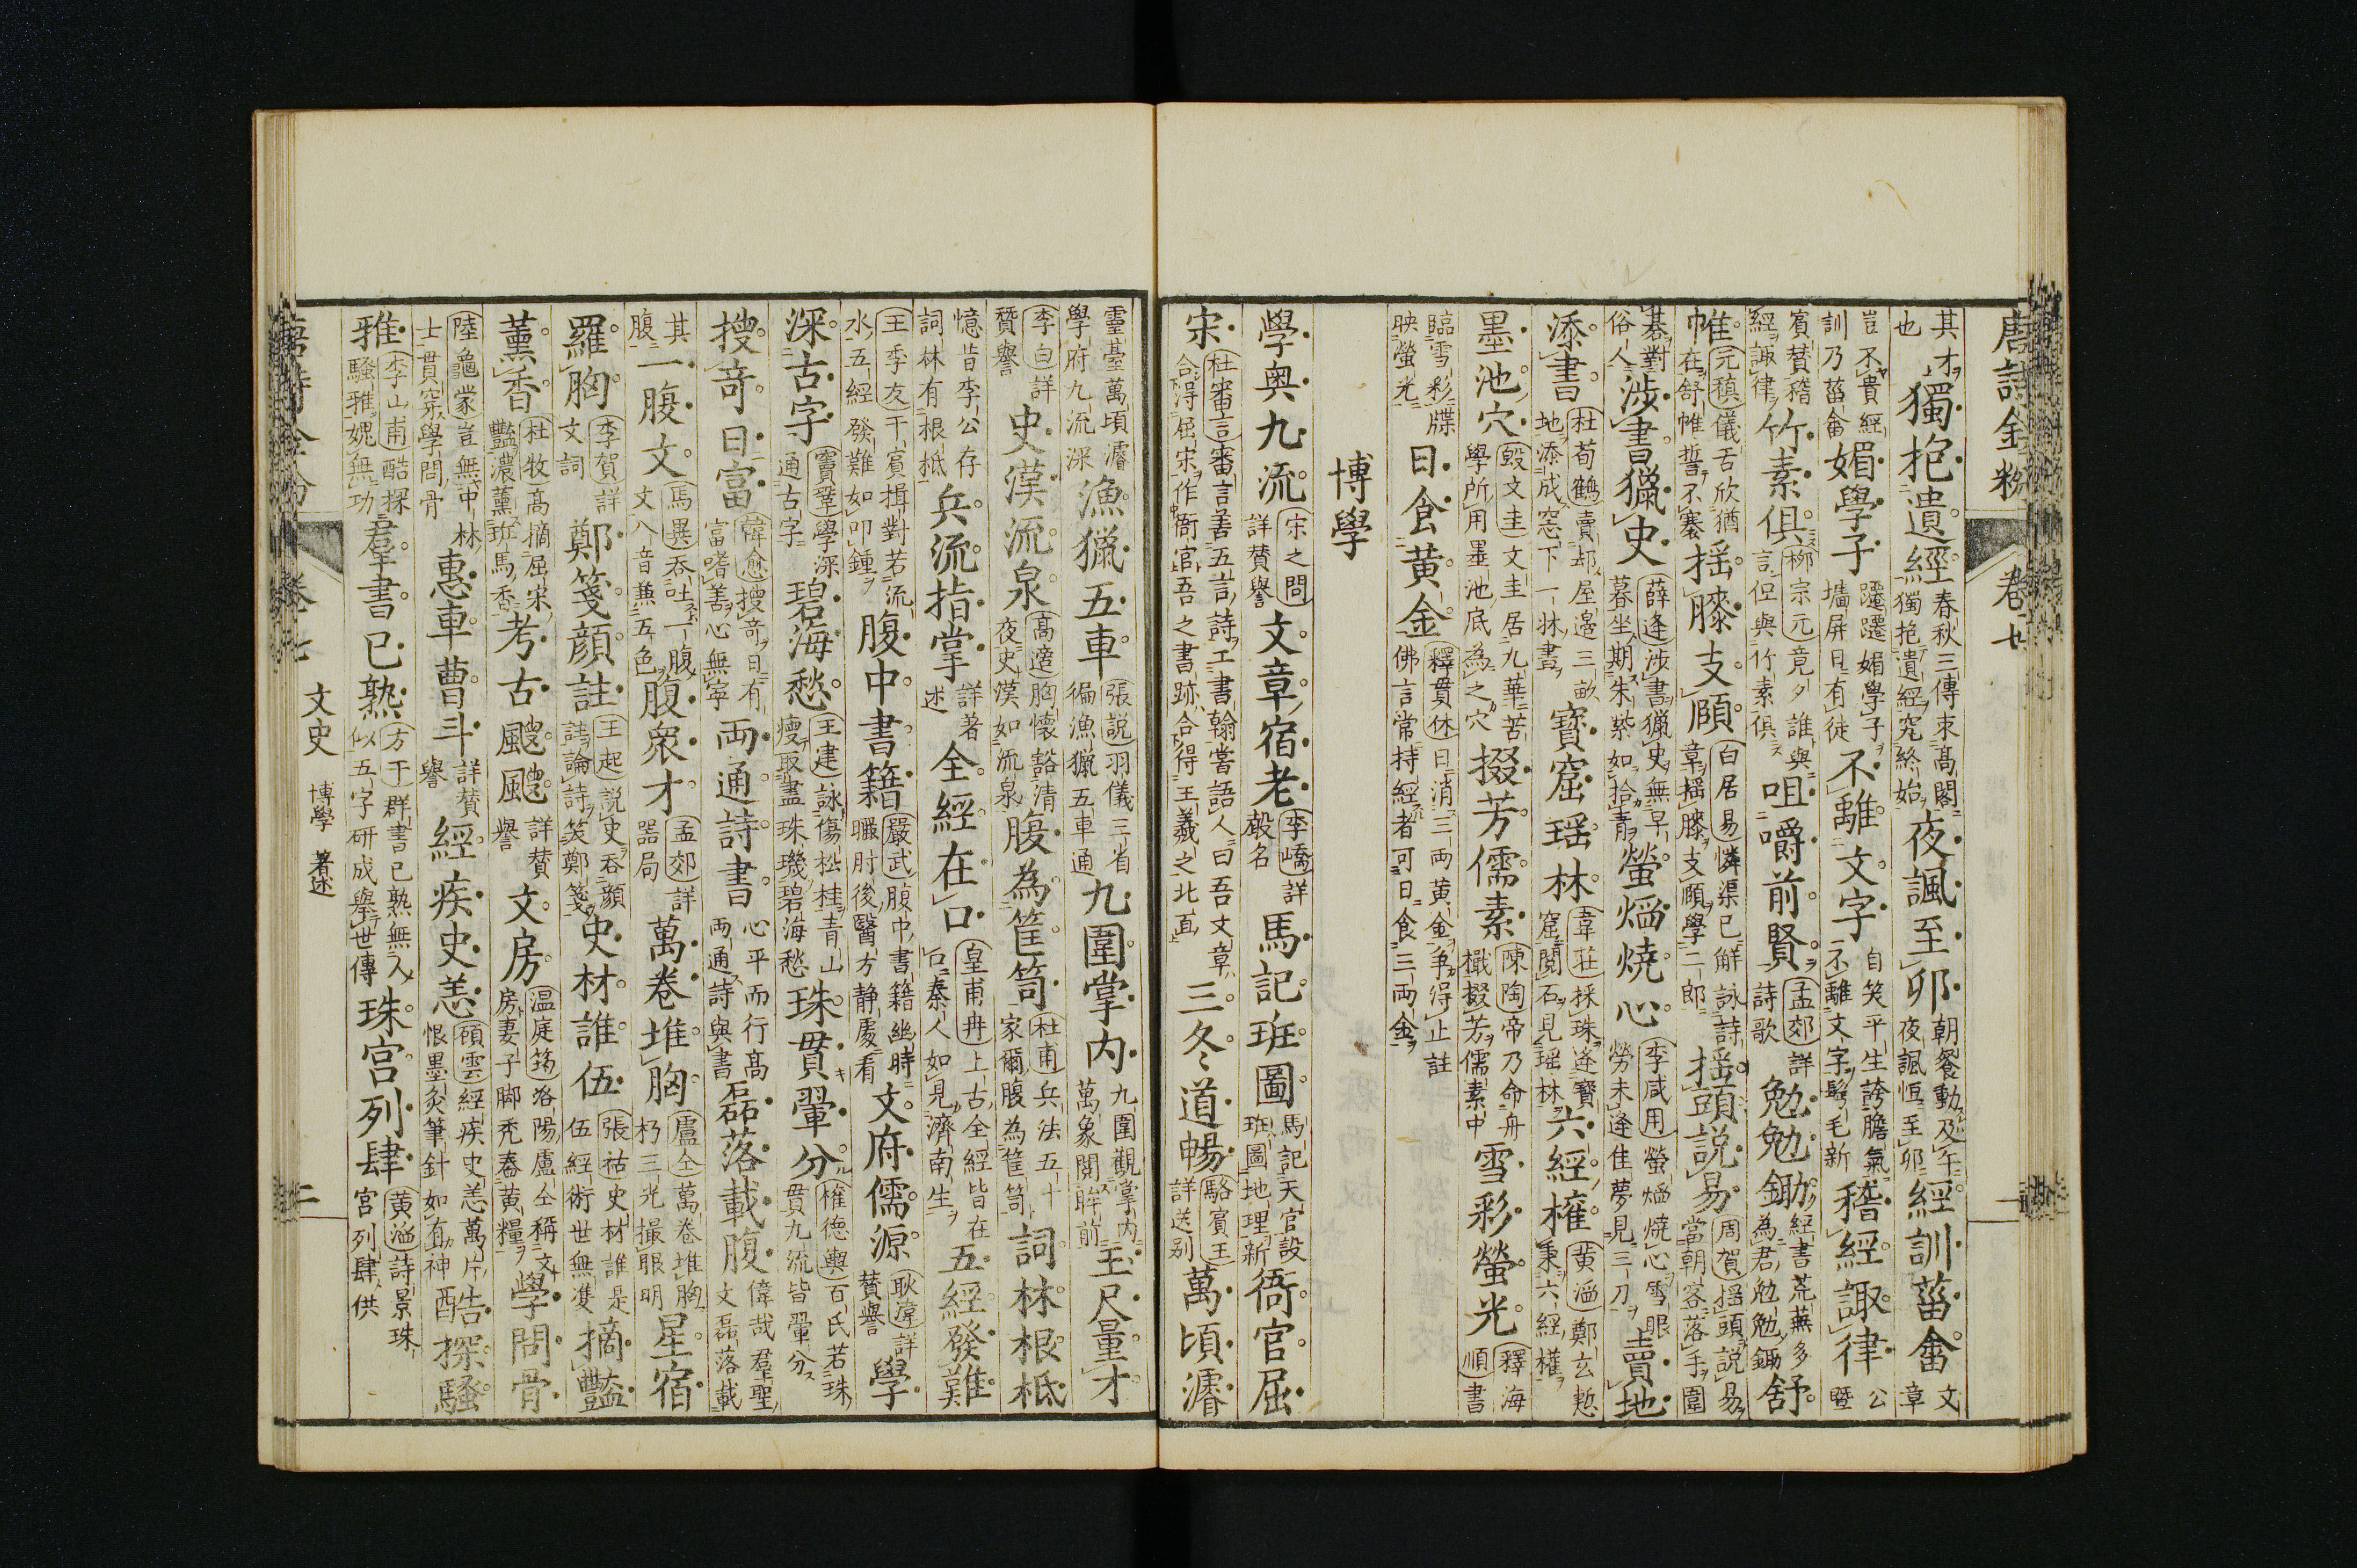 唐詩金粉 卷七
其才也 獨抱遺經 春秋三傳束高閣獨抱遺經究終始 夜諷至卯 朝餐動及午夜諷恒至卯 經訓菑畬 文章
豈不貴經訓乃菑畬 媚學子 躚躚媚學子墻屏日有徒 不離文字 自笑平生誇膽氣不離文字鬂毛新 稽經諏律 公暨
賓賛稽經諏律 竹素俱 柳宗元竟夕誰與言但與竹素俱 咀嚼前賢 孟郊詳詩歌 勉勉鋤 經書荒蕪多為君勉勉鋤 舒
帷 元稹儀舌欣猶在舒帷誓不褰 揺膝支頤 白居易憐渠已解詠詩章揺膝支頤學二郎 揺頭說易 周賀揺頭說易當朝客落手圍
碁對俗人 涉書獵史 薛逢涉書獵史無早暮坐期朱紫如拾青 螢爝燒心 李咸用螢爝燒心雪眼勞未逢佳夢見三刀 賣地
添書 杜荀鶴賣却屋邊三畝地添成窓下一牀書 寶窟瑶林 韋莊採珠逐寶窟閱石見瑶林 六經權 黃滔鄭玄慙秉六經權
墨池穴 殷文圭文圭居九華苦學所用墨池底為之穴 掇芳儒素 陳陶帝乃命舟檝掇芳儒素中 雪彩螢光 釋海順書
臨雪彩牒映螢光 日食黃金 釋貫休日消三兩黃金爭得止註佛言常持經者可日食三兩金
博學
學奥九流 宋之問詳賛譽 文章宿老 李嶠詳殽名 馬記班圖 馬記天官設班圖地理新 衙官屈
宋 杜審言審言善五言詩工書翰嘗語人曰吾文章合得屈宋作衙官吾之書跡合得王羲之北面 三冬道暢 駱賓王詳送别 萬頃濬
靈臺萬頃濬學府九流深 漁獵五車 張說羽儀三省徧漁獵五車通 九圍掌内 九圍觀掌内萬象閱眸前 玉尺量才
李白詳賛譽 史漢流泉 高適胸懷豁清夜史漢如流泉 腹為筐笥 杜甫兵法五十家爾腹為筐笥 詞林根柢
憶昔李公存詞林有根柢 兵流指掌 詳著述 全經在口 皇甫冉上古全經皆在口秦人如見濟南生 五經發難
王季友干賓揖對若流水五經發難如叩鍾 腹中書籍 嚴武腹中書籍幽時曬肘後醫方静處看 文府儒源 耿湋詳賛譽 學
深古字 竇鞏學深通古字 碧海愁 王建詠傷松桂青山瘦取盡珠璣碧海愁 珠貫翬分 權德輿百氏若珠貫九流皆翬分
搜奇日富 韓愈搜奇日有富嗜善心無寧 兩通詩書 心平而行高兩通詩與書 磊落載腹 偉哉群聖文磊落載
其腹 一腹文 馬異吞吐一腹文八音兼五色 腹衆才 孟郊詳器局 萬卷堆胸 盧仝萬卷堆胸朽三光撮眼明 星宿
羅胸 李賀詳文詞 鄭箋顔註 王起說史吞顔註論詩笑鄭箋 史材誰伍 張祜史材誰是伍經術世無雙 摘豔
薰香 杜牧高摘屈宋豔濃薰班馬香 考古颼颼 詳賛譽 文房 温庭筠洛陽盧仝稱文房妻子脚禿舂黃糧 學問骨
陸龜蒙豈無中林士貫穿學問骨 惠車曹斗 詳賛譽 經疾史恙 顧雲經疾史恙萬片恨墨灸筆針如有神 酷探騷
雅 李山甫酷探騷雅媿無功 羣書已熟 方干群書已熟無人似五字研成舉世傳 珠宮列肆 黃滔詩景珠宮列肆供
唐詩金粉 卷七 文史 博學 著述 二